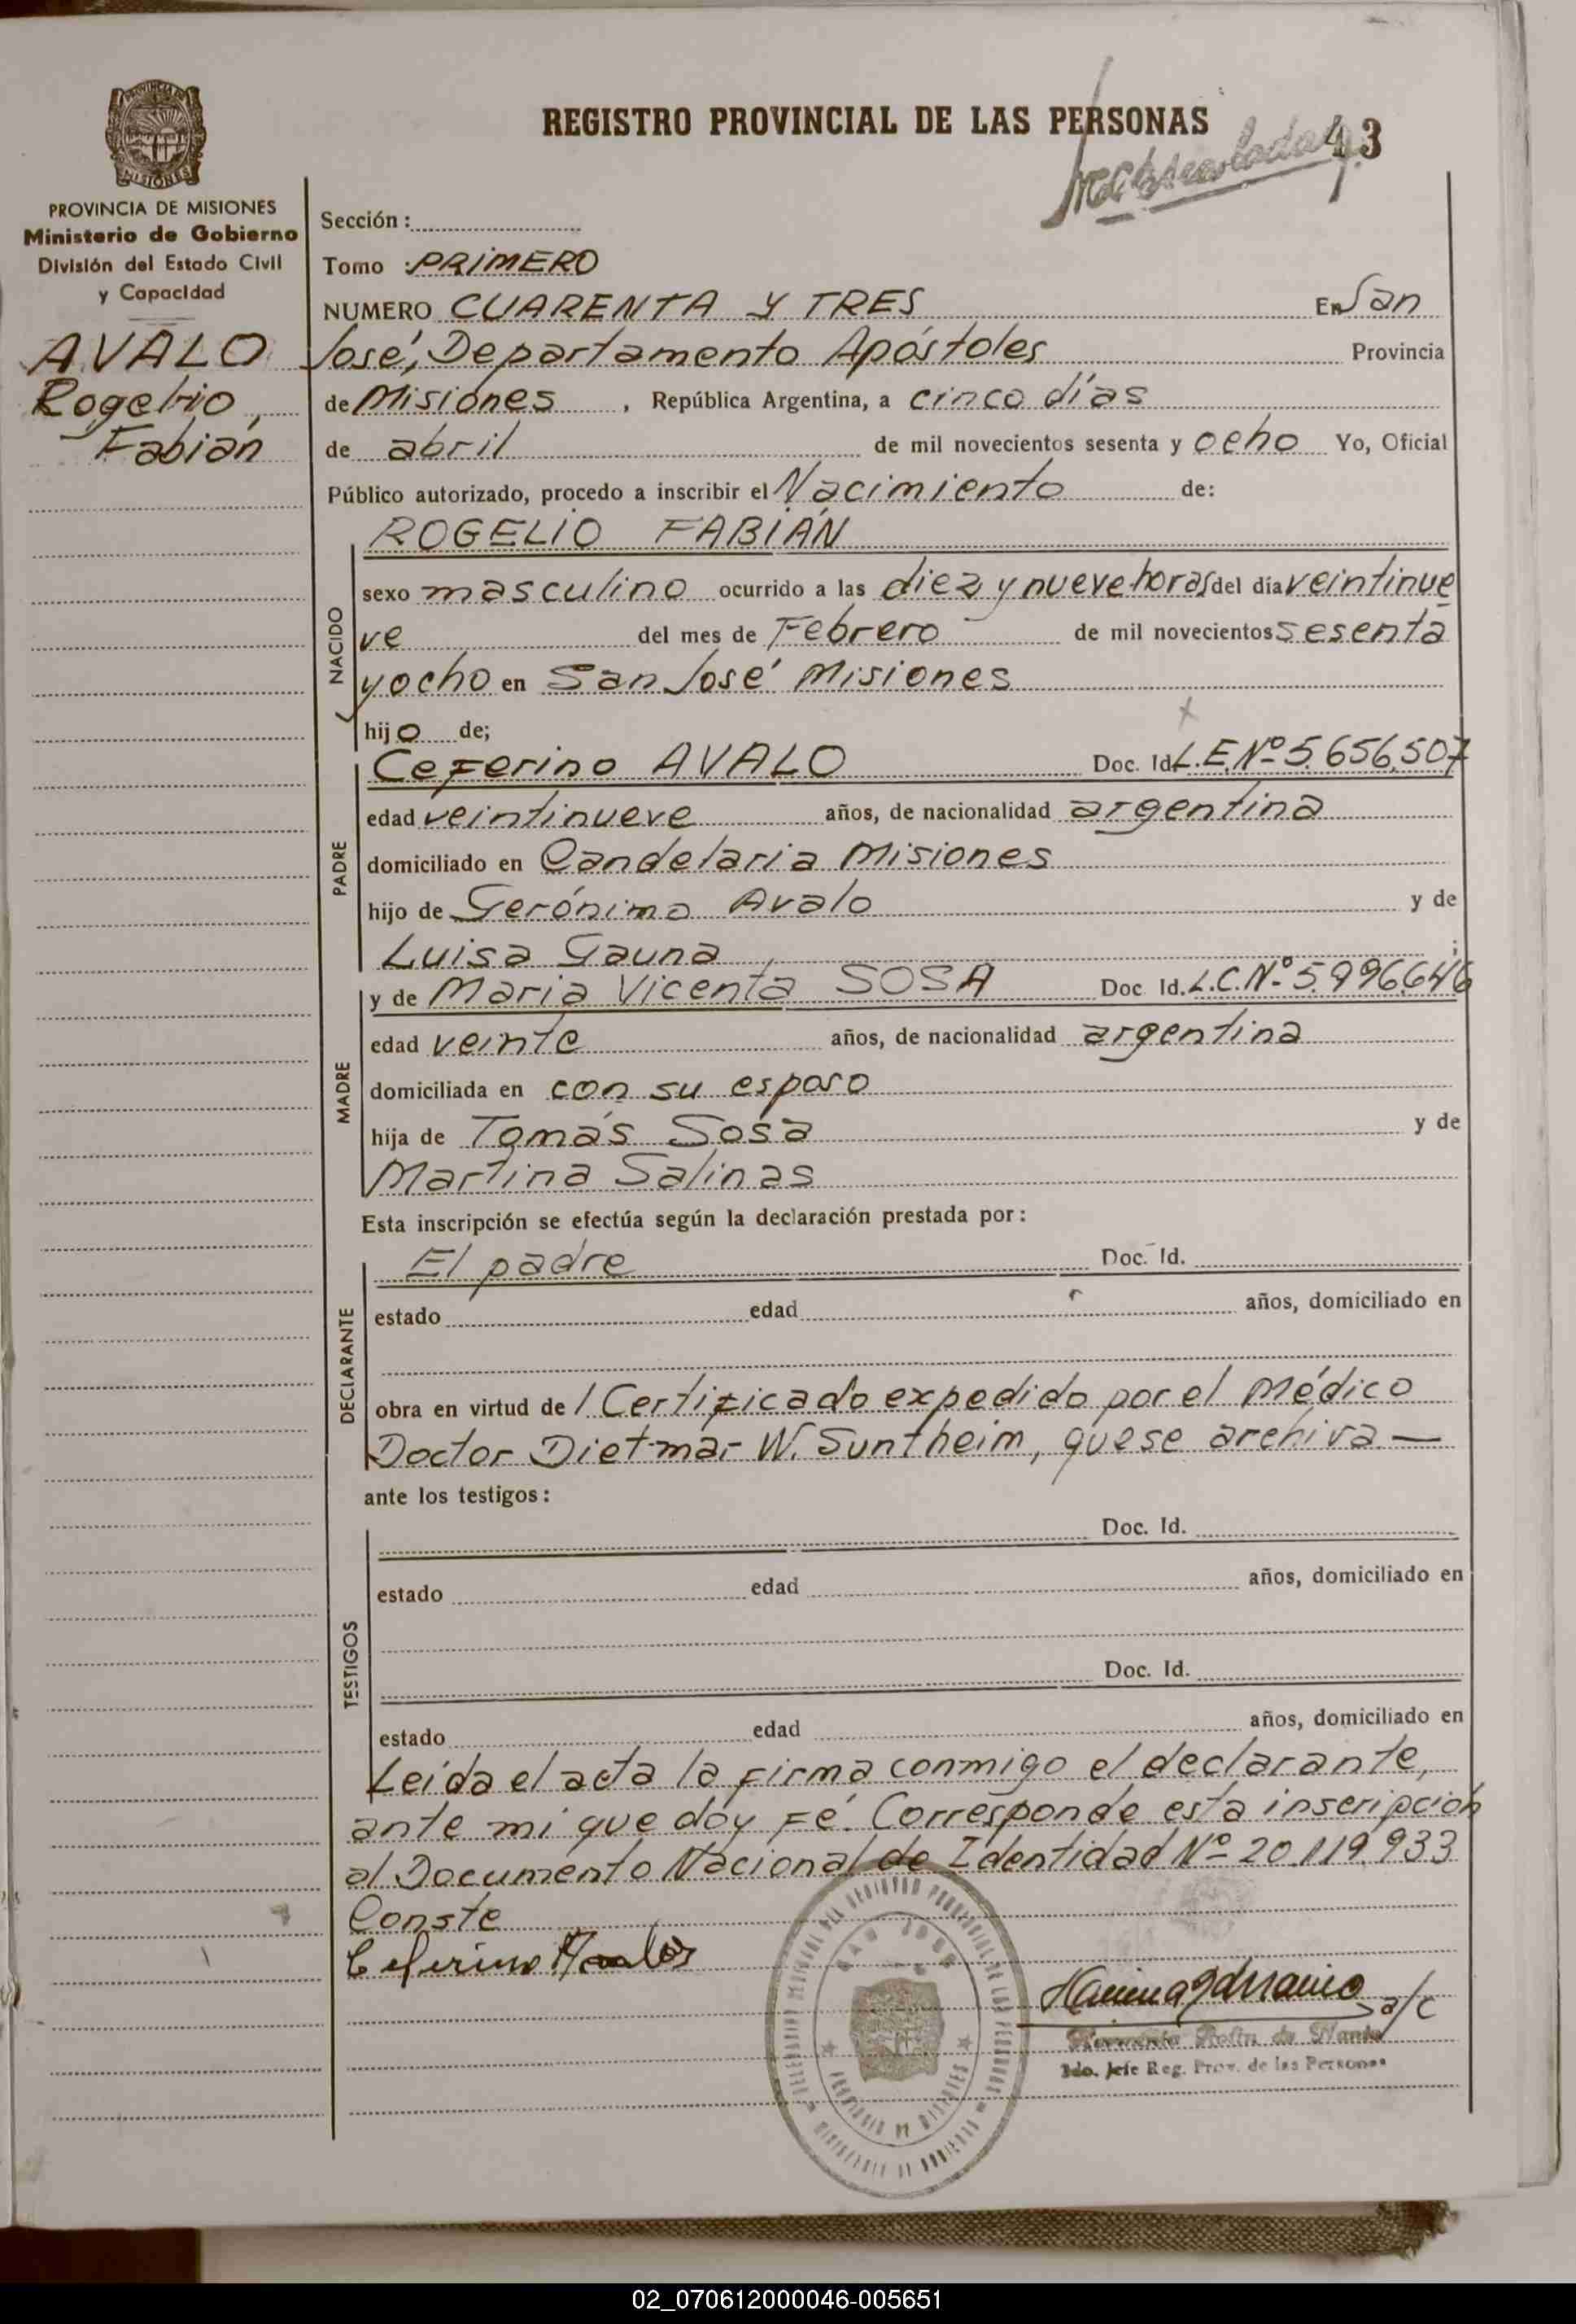 REGISTRO PROVINCIAL DE LAS PERSONAS
43
PROVINCIA DE MISIONES
Ministerio de Gobierno
División del Estado Civil
y Capacidad
AVALO
Rogelio,
Fabián
Sección :
Tomo : PRIMERO
NUMERO CUARENTA Y TRES En San
José, Departamento Apóstoles Provincia
de Misiones , República Argentina, a cinco días
de abril de mil novecientos sesenta y ocho Yo, Oficial
Público autorizado, procedo a inscribir el Nacimiento de:
ROGELIO FABIÁN
NACIDO
sexo masculino ocurrido a las diez y nueve horas del día veintinue
ve del mes de Febrero de mil novecientos sesenta
y ocho en San José Misiones
hijo de;
PADRE
Ceferino AVALO Doc. Id. L.E. Nº 5.656.507
edad veintinueve años, de nacionalidad argentina
domiciliado en Candelaria Misiones
hijo de Gerónimo Avalo y de
Luisa Gauna ;
MADRE
y de Maria Vicenta SOSA Doc. Id. L.C. Nº 5.996.646
edad veinte años, de nacionalidad argentina
domiciliada en con su esposo
hija de Tomás Sosa y de
Martina Salinas
Esta inscripción se efectúa según la declaración prestada por:
DECLARANTE
El padre Doc. Id.
estado edad años, domiciliado en
obra en virtud de l Certificado expedido por el Médico
Doctor Dietmar W. Suntheim, que se archiva —
ante los testigos:
TESTIGOS
Doc. Id.
estado edad años, domiciliado en
Doc. Id.
estado edad años, domiciliado en
Leída el acta la firma conmigo el declarante,
ante mi que doy fé. Corresponde esta inscripción
al Documento Nacional de Identidad Nº 20.119.933
Conste
Ceferino Avalos
SAN JOSE
PROVINCIA DE MISIONES
MINISTERIO DE GOBIERNO
a/c
2do. Jefe Reg. Prov. de las Personas
02_070612000046-005651